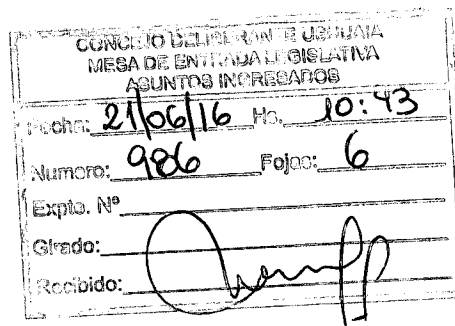 CONCEJO DELIBERANTE USHUAIA
MESA DE ENTRADA LEGISLATIVA
ASUNTOS INGRESADOS
Fecha: 21/06/16 Hs. 10:43
Numero: 986 Fojas: 6
Expte. Nº
Girado:
Recibido: